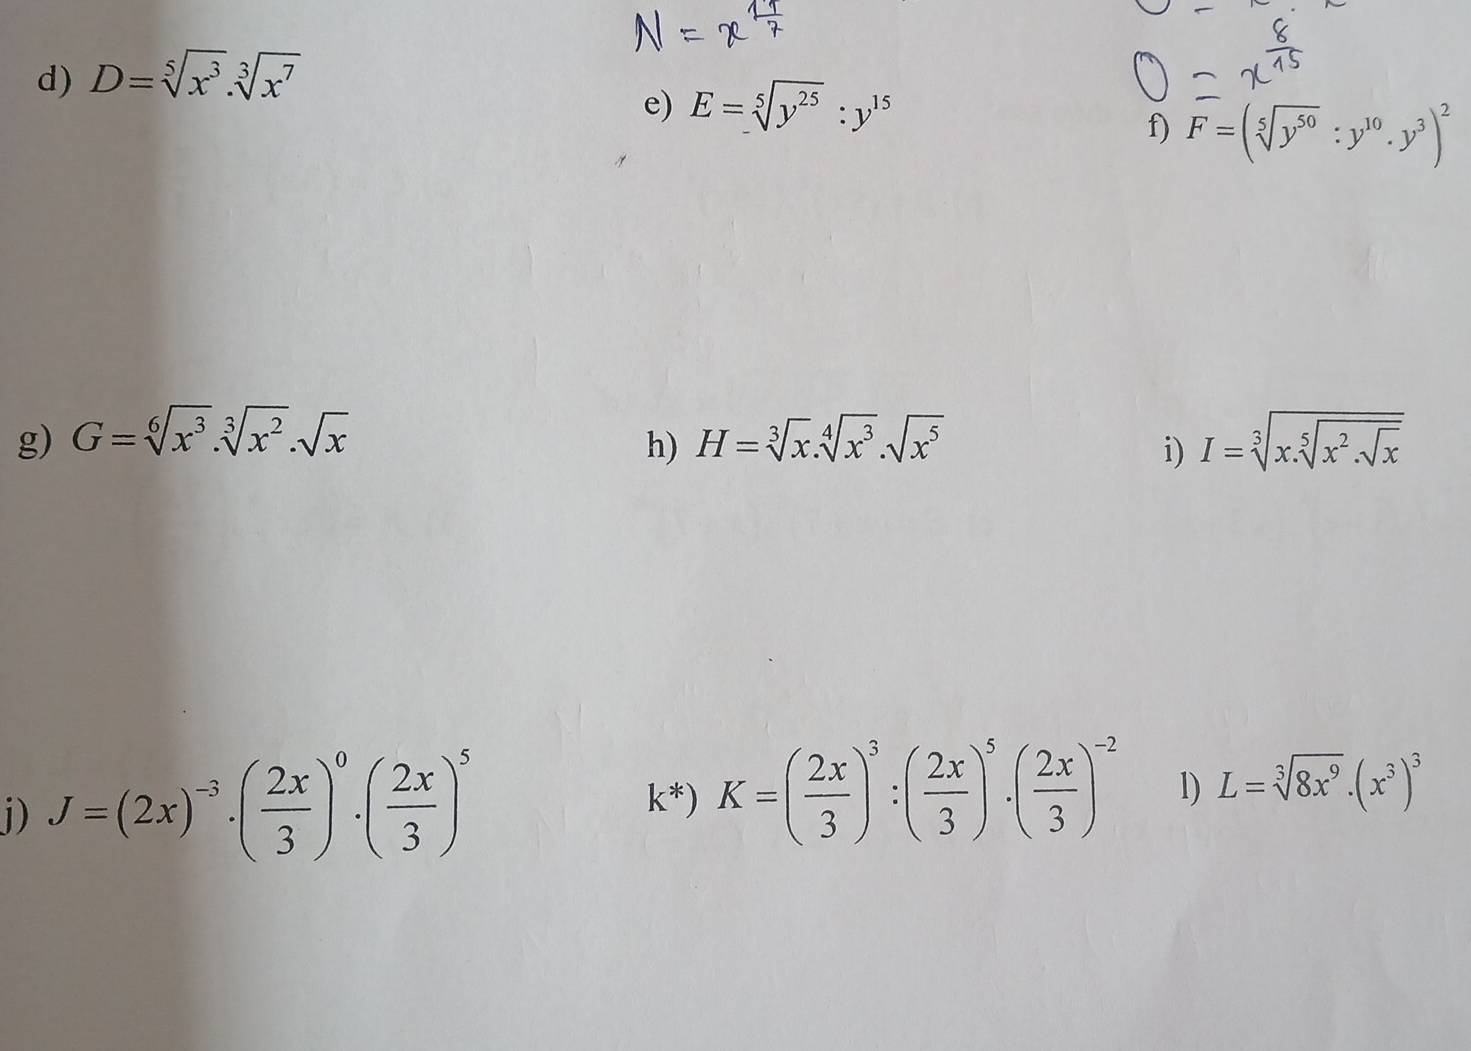 N = x^{\frac{11}{7}}
O = x^{\frac{8}{15}}
d) D = \sqrt[5]{x^3}.\sqrt[3]{x^7}
e) E = \sqrt[5]{y^{25}} : y^{15}
f) F = (\sqrt[5]{y^{50}} : y^{10} . y^3)^2
g) G = \sqrt[6]{x^3}.\sqrt[3]{x^2}.\sqrt{x}
h) H = \sqrt[3]{x}.\sqrt[4]{x^3}.\sqrt{x^5}
i) I = \sqrt[3]{x.\sqrt[5]{x^2.\sqrt{x}}}
j) J = (2x)^{-3}.(\frac{2x}{3})^0.(\frac{2x}{3})^5
k*) K = (\frac{2x}{3})^3 : (\frac{2x}{3})^5.(\frac{2x}{3})^{-2}
l) L = \sqrt[3]{8x^9}.(x^3)^3